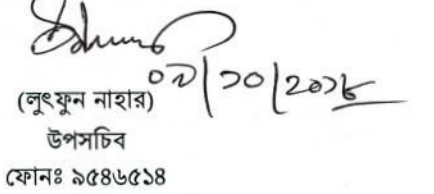 ০৯/১০/২০১৮
(লুৎফুন নাহার)
উপসচিব
ফোনঃ ৯৫৪৬৫১৪